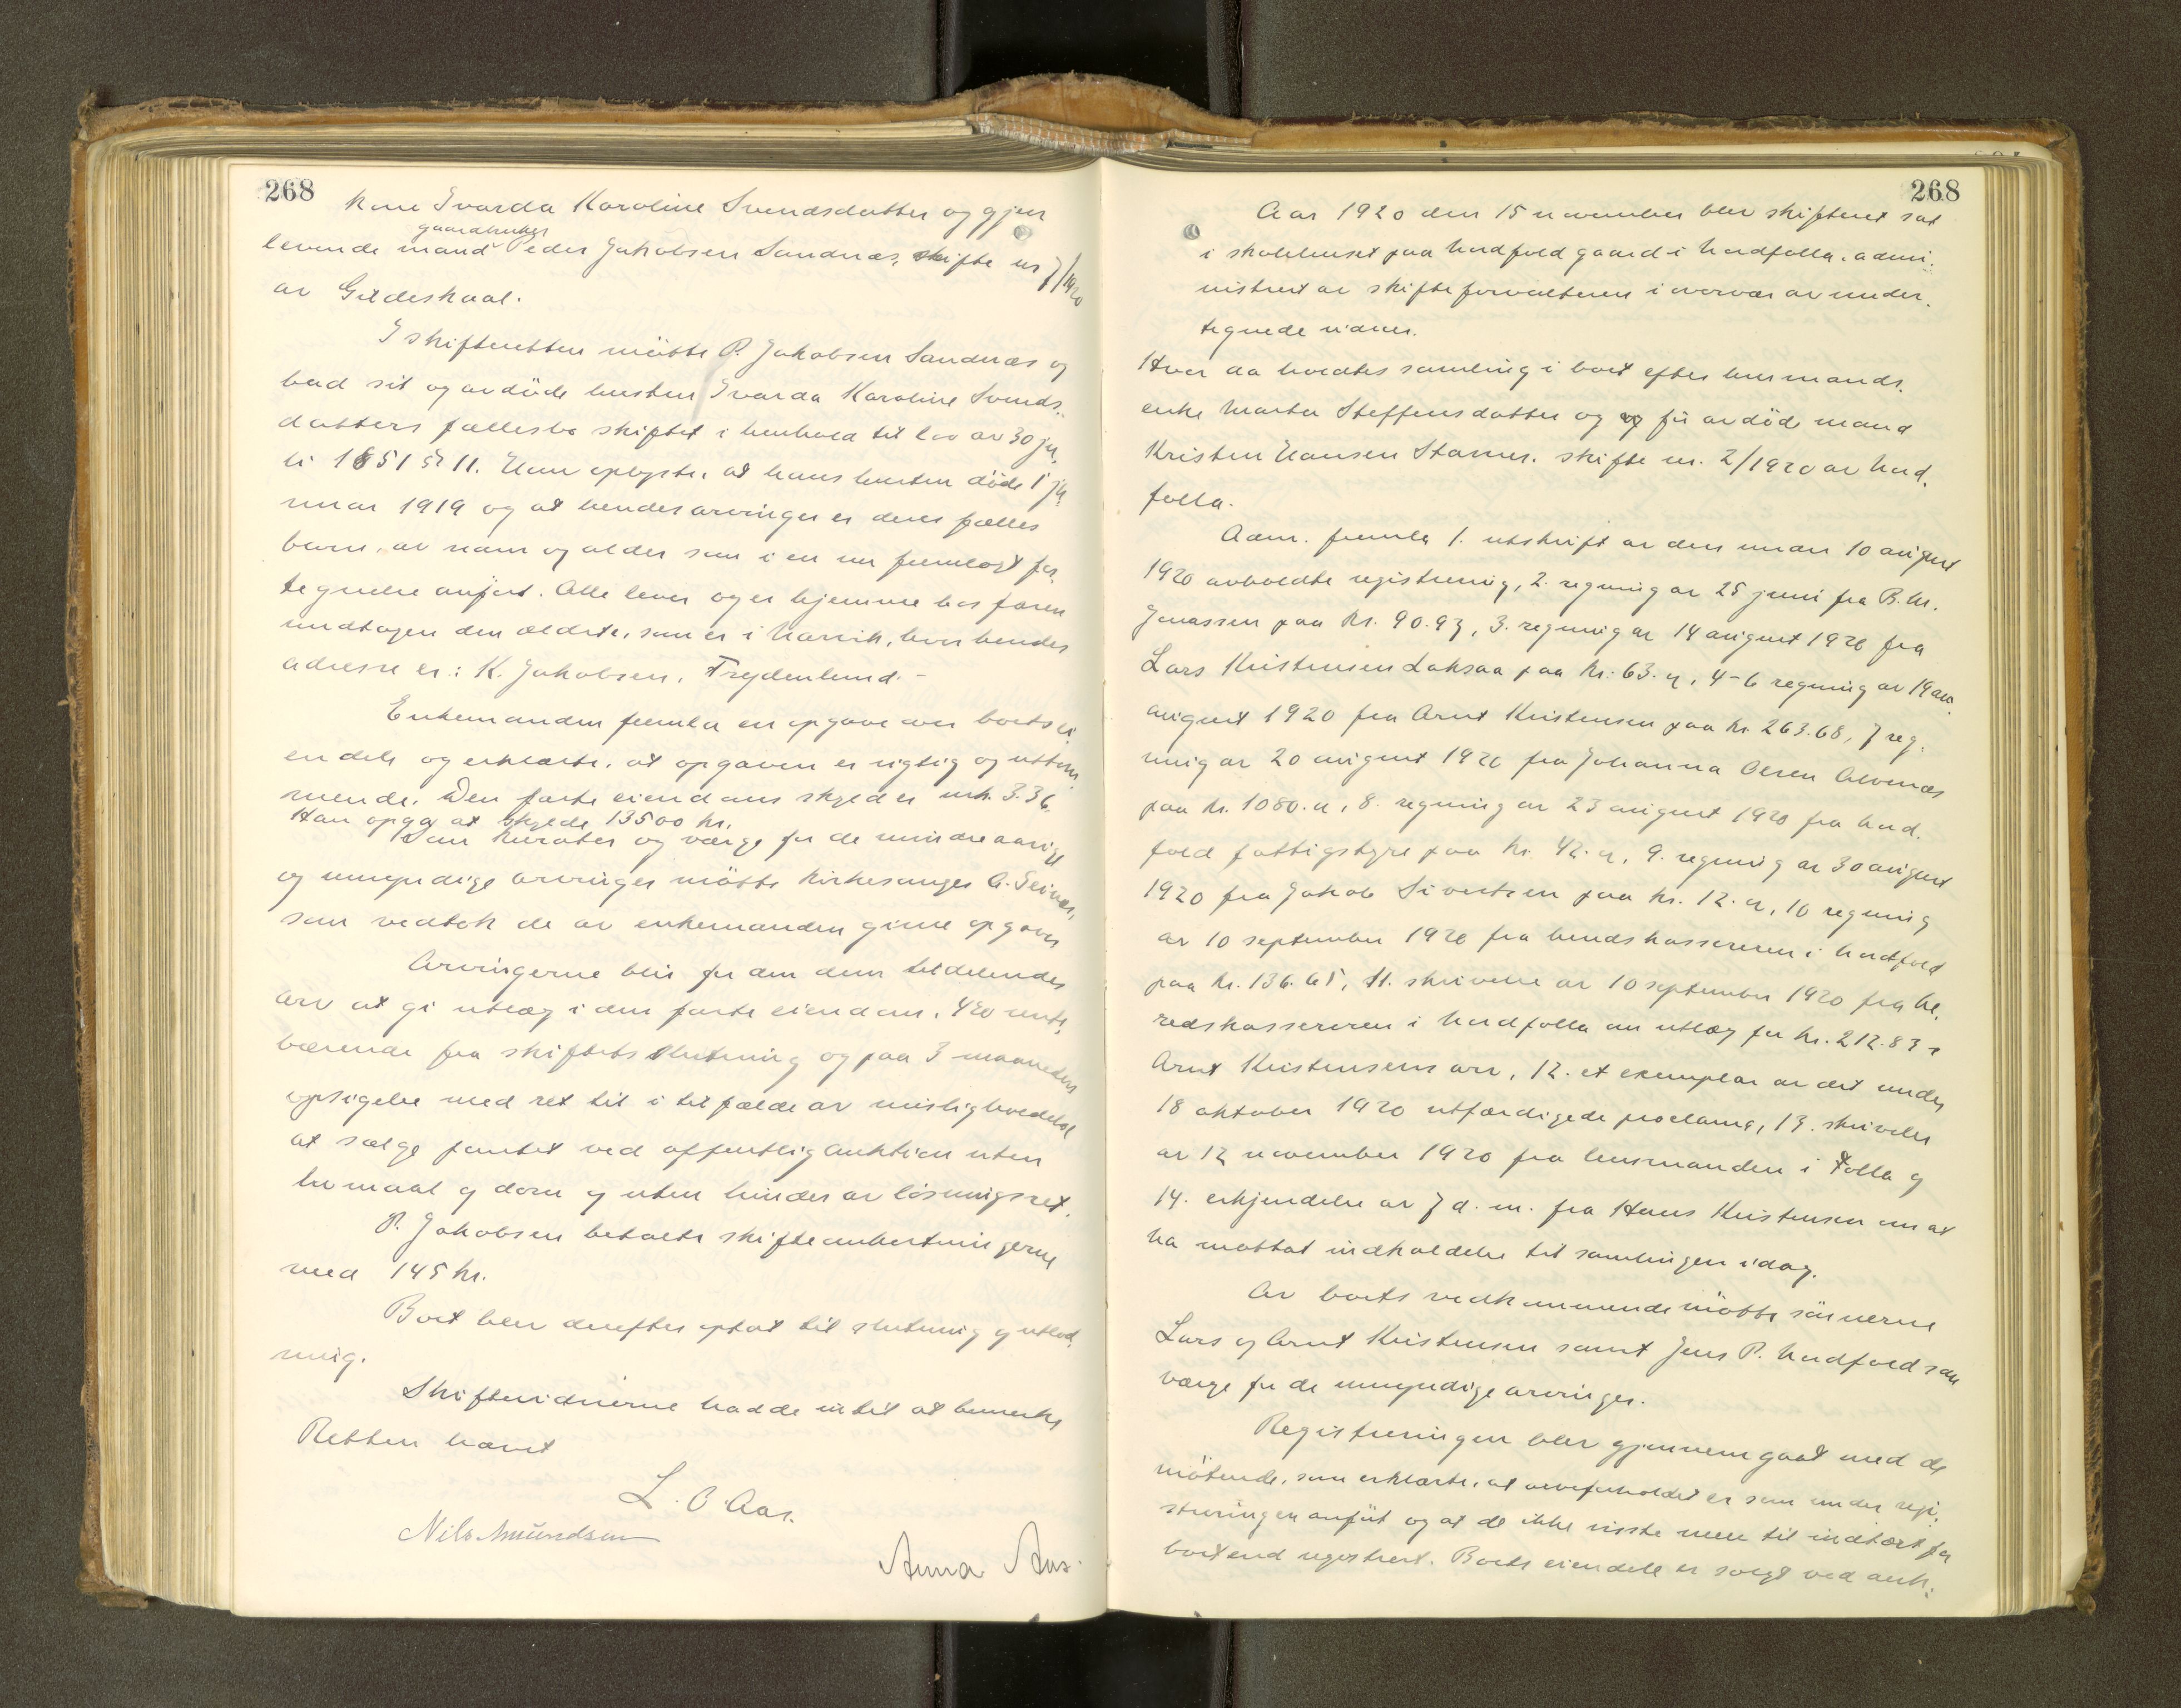 268
kone Ivarda Karoline Svendsdatter og gjen
levende mand gaardbruker Peder Jakobsen Sandnæs, skifte nr 7/1920
av Gildeskaal.
I skifteretten møtte P. Jakobsen Sandnæs og
bad sit og avdøde hustru Ivarda Karoline Svends-
datters fællesbo skiftet i henhold til lov av 30 ju-
li 1851 § 11. Han oplyste, at hans hustru døde 1 ja-
nuar 1919 og at hendes arvinger er deres fælles
barn, av navn og alder som i en nu fremlagt for-
tegnelse anført. Alle lever og er hjemme hos faren
undtagen den ældste, som er i Narvik, hvor hendes
adresse er: K. Jakobsen, Frydenlund. -
Enkemanden fremla en opgave over boets ei-
endele og erklærte, at opgaven er rigtig og uttøm-
mende. Den faste eiendoms skyld er mrk. 3.36.
Han opga at skylde 13500 kr.
Som kurator og værge for de mindreaarige
og umyndige arvinger møtte kirkesanger A. Seines,
som vedtok de av enkemanden givne opgaver
Arvingerne blir for den dem tildelendes
arv at gi utlæg i den faste eiendom, 4% rente-
bærende fra skiftets slutning og paa 3 maaneders
opsigelse med ret til i tilfælde av misligholdelse
at sælge pantet ved offentlig auktion uten
lovmaal og dom og uten hinder av løsningsret.
P. Jakobsen betalte skifteomkostningerne
med 145 kr.
Boet blev derefter optat til slutning og utlod-
ning.
Skiftevidnerne hadde intet at bemerke
Retten hævet
L. O. Aas.
Nils Amundsen
Anna Aas.
268
Aar 1920 den 15 november blev skifteret sat
i skolehuset paa Nordfold gaard i Nordfolla, admi-
nistrert av skifteforvalteren i overvær av under-
tegnede vidner.
Hvor da holdtes samling i boet efter husmands-
enke Marta Steffensdatter og og før avdød mand
Kristen Hansen Stavnes. skifte nr. 2/1920 av Nord-
folla.
Adm. fremla 1. utskrift av den under 10 august
1920 avholdte registrering, 2. regning av 25 juni fra B. M.
Jonassen paa kr. 90.93, 3. regning av 14 august 1920 fra
Lars Kristensen Laksaa paa kr. 63. , 4-6 regning av 19
august 1920 fra Arnt Kristensen paa kr. 263.68, 7 reg-
ning av 20 august 1920 fra Johanna Olsen Alvenæs
paa kr. 1080. , 8. regning av 23 august 1920 fra Nord-
fold fattigstyre paa kr. 42. , 9. regning av 30 august
1920 fra Jakob Sivertsen paa kr. 12. , 10 regning
av 10 september 1920 fra herredskassereren i Nordfold
paa kr. 136.65, 11. skrivelse av 10 september 1920 fra he-
redskassereren i Nordfolla om utlæg for kr. 212.83 i
Arnt Kristensens arv, 12. et exemplar av det under
18 oktober 1920 utfærdigede proclama, 13. skrivelse
av 12 november 1920 fra lensmanden i Folla og
14. erkjendelse av 7 d. m. fra Hans Kristensen om at
ha mottat indkaldelse til samlingen idag.
Av boets vedkommende møtte sønnerne
Lars og Arnt Kristensen samt Jens P. Nordfold som
værge for de umyndige arvinger.
Registreringen blev gjennemgaat med de
møtende, som erklærte, at arveforholdet er som under regi-
streringen anført og at de ikke visste mere til indtægt for
boet end registrert. Boets eiendele er solgt ved auk-